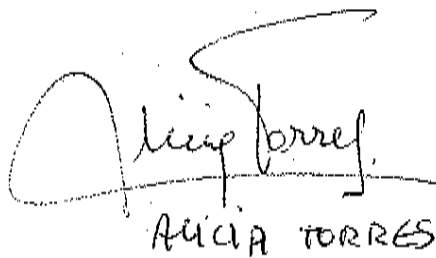 Alicia Torres
ALICIA TORRES